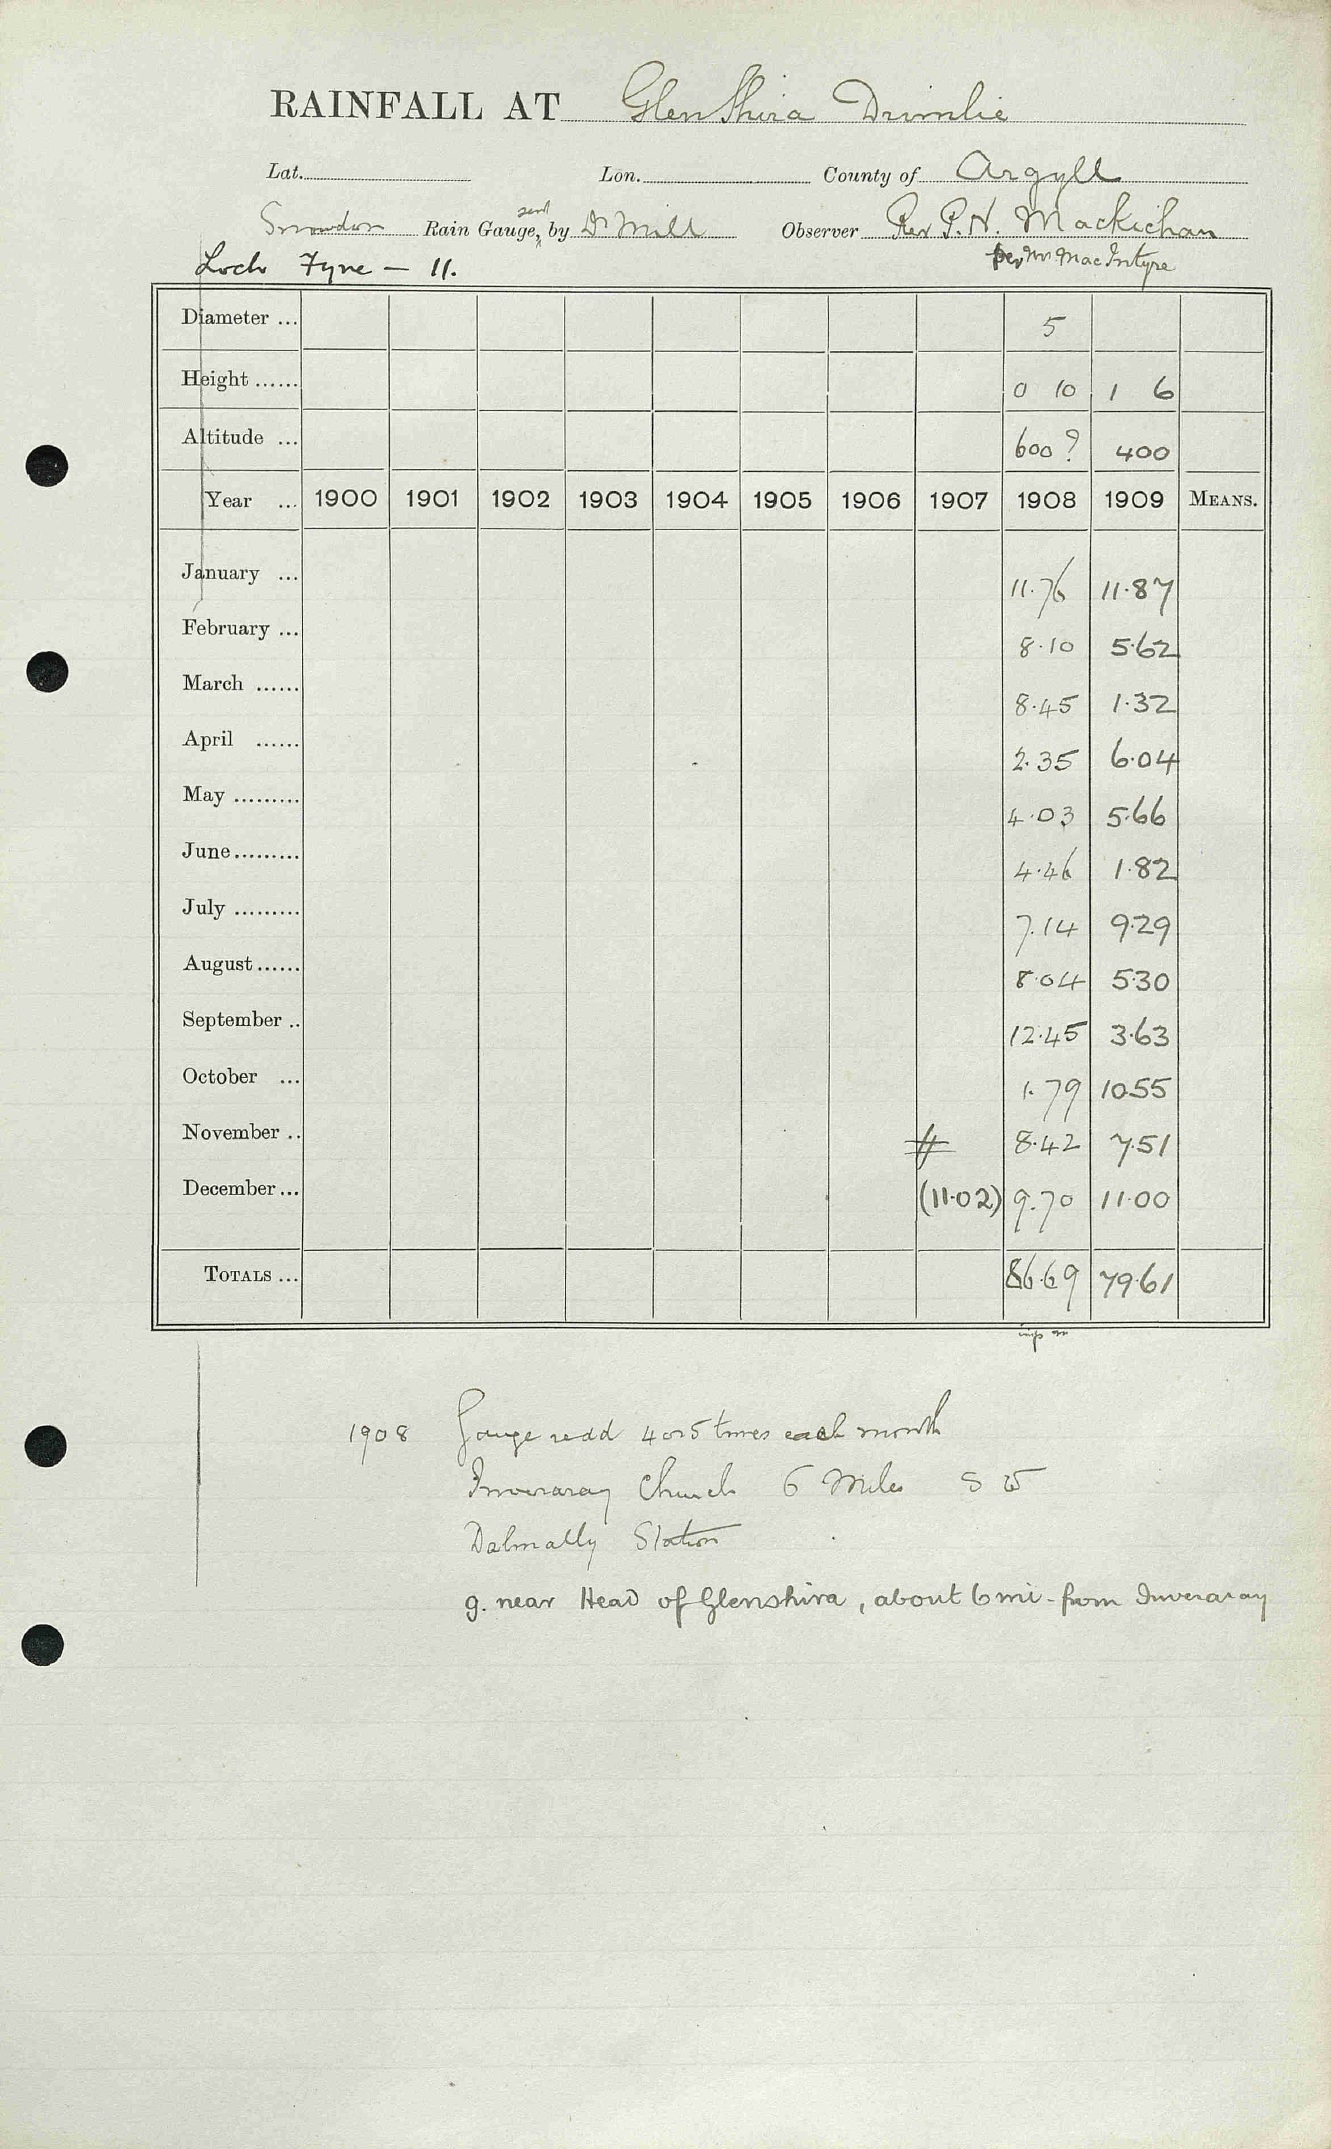 RAINFALL AT Glen Shira Drimlie
Lat. Lon. County of Argyll
Snowdon Rain Gauge, sent by Dr Mill Observer Rev P. N. Mackichan
Loch Fyne — 11. per Mr MacIntyre
Diameter ... 5
Height ...... 0 10 1 6
Altitude ... 600? 400
Year ... 1900 1901 1902 1903 1904 1905 1906 1907 1908 1909 MEANS.
January ... 11.76 11.87
February ... 8.10 5.62
March ...... 8.45 1.32
April ...... 2.35 6.04
May ......... 4.03 5.66
June ......... 4.46 1.82
July ......... 7.14 9.29
August ...... 8.04 5.30
September .. 12.45 3.63
October ... 1.79 10.55
November .. # 8.42 7.51
December ... (11.02) 9.70 11.00
TOTALS ... 86.69 79.61
1908 Gauge read 4 or 5 times each month
Inveraray Church 6 Miles S W
Dalmally Station
g. near Head of Glenshira, about 6 mi. from Inveraray